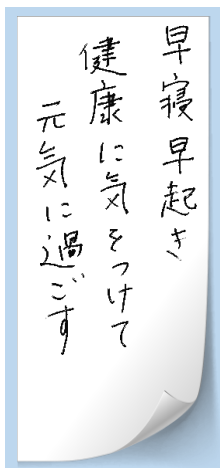 早寝早起き
健康に気をつけて
元気に過ごす